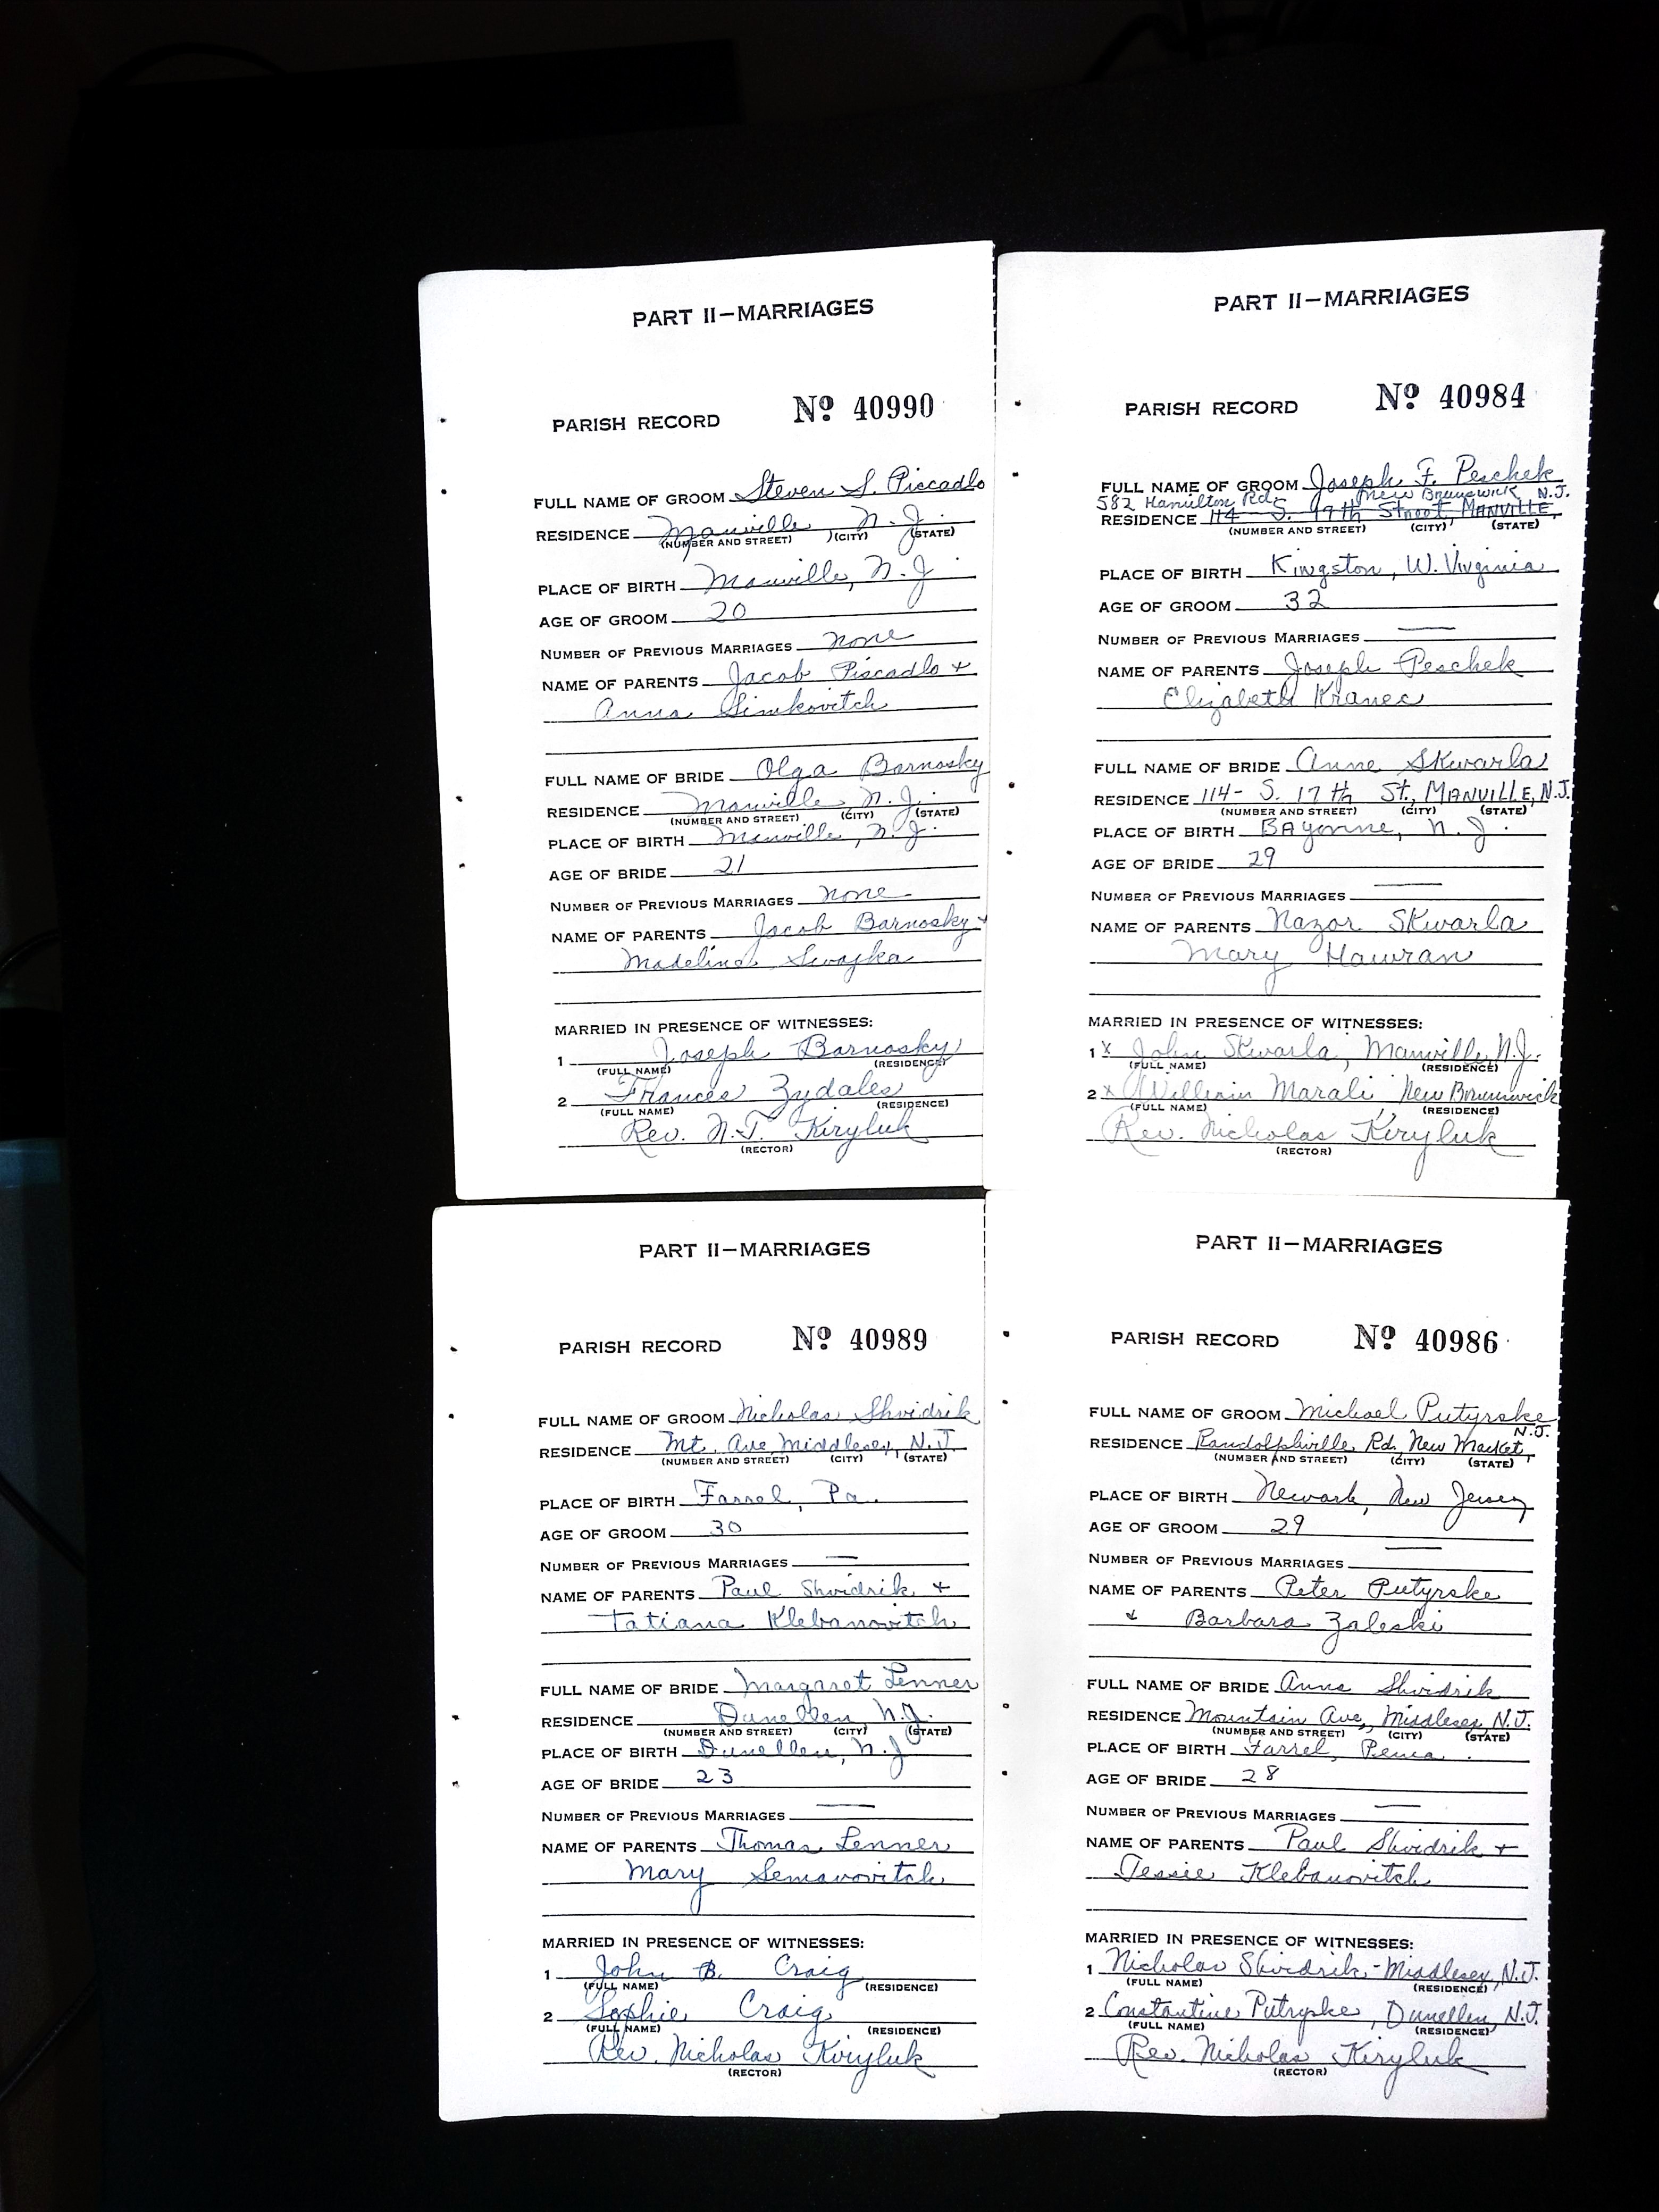 PART II—MARRIAGES
PARISH RECORD Nº 40990
FULL NAME OF GROOM Steven S. Piscadlo
RESIDENCE Manville, N.J.
(NUMBER AND STREET) (CITY) (STATE)
PLACE OF BIRTH Manville, N.J
AGE OF GROOM 20
NUMBER OF PREVIOUS MARRIAGES none
NAME OF PARENTS Jacob Piscadlo +
Anna Simkovitch
FULL NAME OF BRIDE Olga Barnosky
RESIDENCE Manville, N.J.
(NUMBER AND STREET) (CITY) (STATE)
PLACE OF BIRTH Manville, N.J.
AGE OF BRIDE 21
NUMBER OF PREVIOUS MARRIAGES none
NAME OF PARENTS Jacob Barnosky +
Madeline
MARRIED IN PRESENCE OF WITNESSES:
1 Joseph Barnosky
(FULL NAME) (RESIDENCE)
2 Frances Zydales
(FULL NAME) (RESIDENCE)
Rev. N.T. Kiryluk
(RECTOR)
PART II—MARRIAGES
PARISH RECORD Nº 40984
FULL NAME OF GROOM Joseph F. Peschek
582 Hamilton Rd. New Brunswick, N.J.
RESIDENCE 114- S. 17th Street, MANVILLE,
(NUMBER AND STREET) (CITY) (STATE)
PLACE OF BIRTH Kingston, W. Virginia
AGE OF GROOM 32
NUMBER OF PREVIOUS MARRIAGES —
NAME OF PARENTS Joseph Peschek
Elizabeth Kranec
FULL NAME OF BRIDE Anne Skwarla
RESIDENCE 114- S. 17th St., MANVILLE, N.J.
(NUMBER AND STREET) (CITY) (STATE)
PLACE OF BIRTH BAyonne, N.J.
AGE OF BRIDE 29
NUMBER OF PREVIOUS MARRIAGES —
NAME OF PARENTS Nazor Skwarla
Mary Hawran
MARRIED IN PRESENCE OF WITNESSES:
1 x John Skwarla, Manville, N.J.
(FULL NAME) (RESIDENCE)
2 x William Marali New Brunswick
(FULL NAME) (RESIDENCE)
Rev. Nicholas Kiryluk
(RECTOR)
PART II—MARRIAGES
PARISH RECORD Nº 40989
FULL NAME OF GROOM Nicholas Shvidrik
RESIDENCE Mt. Ave Middlesex, N.J
(NUMBER AND STREET) (CITY) (STATE)
PLACE OF BIRTH Farrel, Pa.
AGE OF GROOM 30
NUMBER OF PREVIOUS MARRIAGES —
NAME OF PARENTS Paul Shvidrik +
Tatiana Klebanovitch
FULL NAME OF BRIDE Margaret Lenner
RESIDENCE Dunellen, N.J.
(NUMBER AND STREET) (CITY) (STATE)
PLACE OF BIRTH Dunellen, N.J
AGE OF BRIDE 23
NUMBER OF PREVIOUS MARRIAGES —
NAME OF PARENTS Thomas Lenner
Mary Semanovitch
MARRIED IN PRESENCE OF WITNESSES:
1 John B. Craig
(FULL NAME) (RESIDENCE)
2 Sophie Craig
(FULL NAME) (RESIDENCE)
Rev. Nicholas Kiryluk
(RECTOR)
PART II—MARRIAGES
PARISH RECORD Nº 40986
FULL NAME OF GROOM Michael Putyrske
N.J.
RESIDENCE Randolphville Rd., New Market,
(NUMBER AND STREET) (CITY) (STATE)
PLACE OF BIRTH Newark, New Jersey
AGE OF GROOM 29
NUMBER OF PREVIOUS MARRIAGES —
NAME OF PARENTS Peter Putyrske
+ Barbara Zaleski
FULL NAME OF BRIDE Anna Shvidrik
RESIDENCE Mountain Ave., Middlesex, N.J.
(NUMBER AND STREET) (CITY) (STATE)
PLACE OF BIRTH Farrel, Penna.
AGE OF BRIDE 28
NUMBER OF PREVIOUS MARRIAGES —
NAME OF PARENTS Paul Shvidrik +
Tessie Klebanovitch
MARRIED IN PRESENCE OF WITNESSES:
1 Nicholas Shvidrik - Middlesex, N.J.
(FULL NAME) (RESIDENCE)
2 Constantine Putryske, Dunellen, N.J.
(FULL NAME) (RESIDENCE)
Rev. Nicholas Kiryluk
(RECTOR)